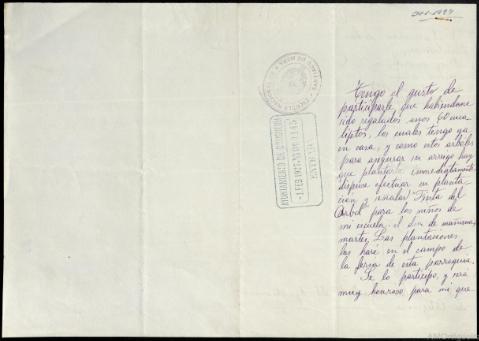 Tengo el gusto de
participarle que habiéndome
sido regalados unos 60 euca
liptos, los cuales tengo ya
en casa, y como estos arboles
para asegurar su arraigo hay
que plantarlos inmediatamente
dispuse efectuar su planta
cion y celebrar Fiesta del
Arbol para los niños de
mi escuela, el dia de mañana,
martes. Las plantaciones
las haré en el campo de
la feria de esta parroquia.
Se lo participo, y sera
muy honroso para mi que
-1 FEB 1927
ENTRADA